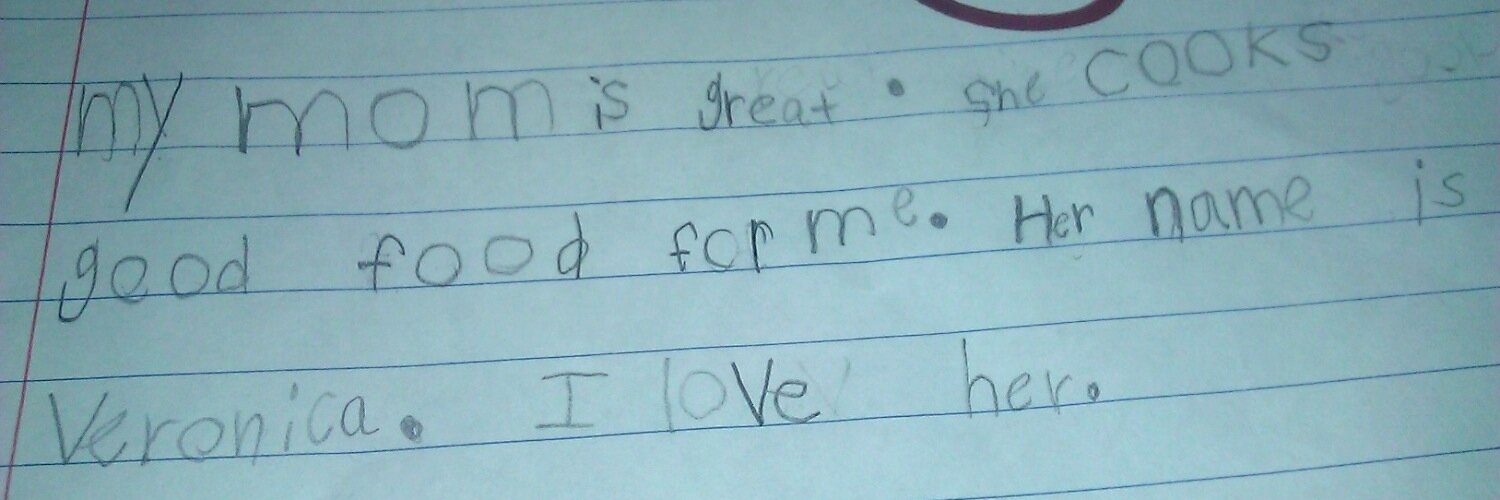 my mom is great. she COOKS
good food for me. Her name is
Veronica. I love her.